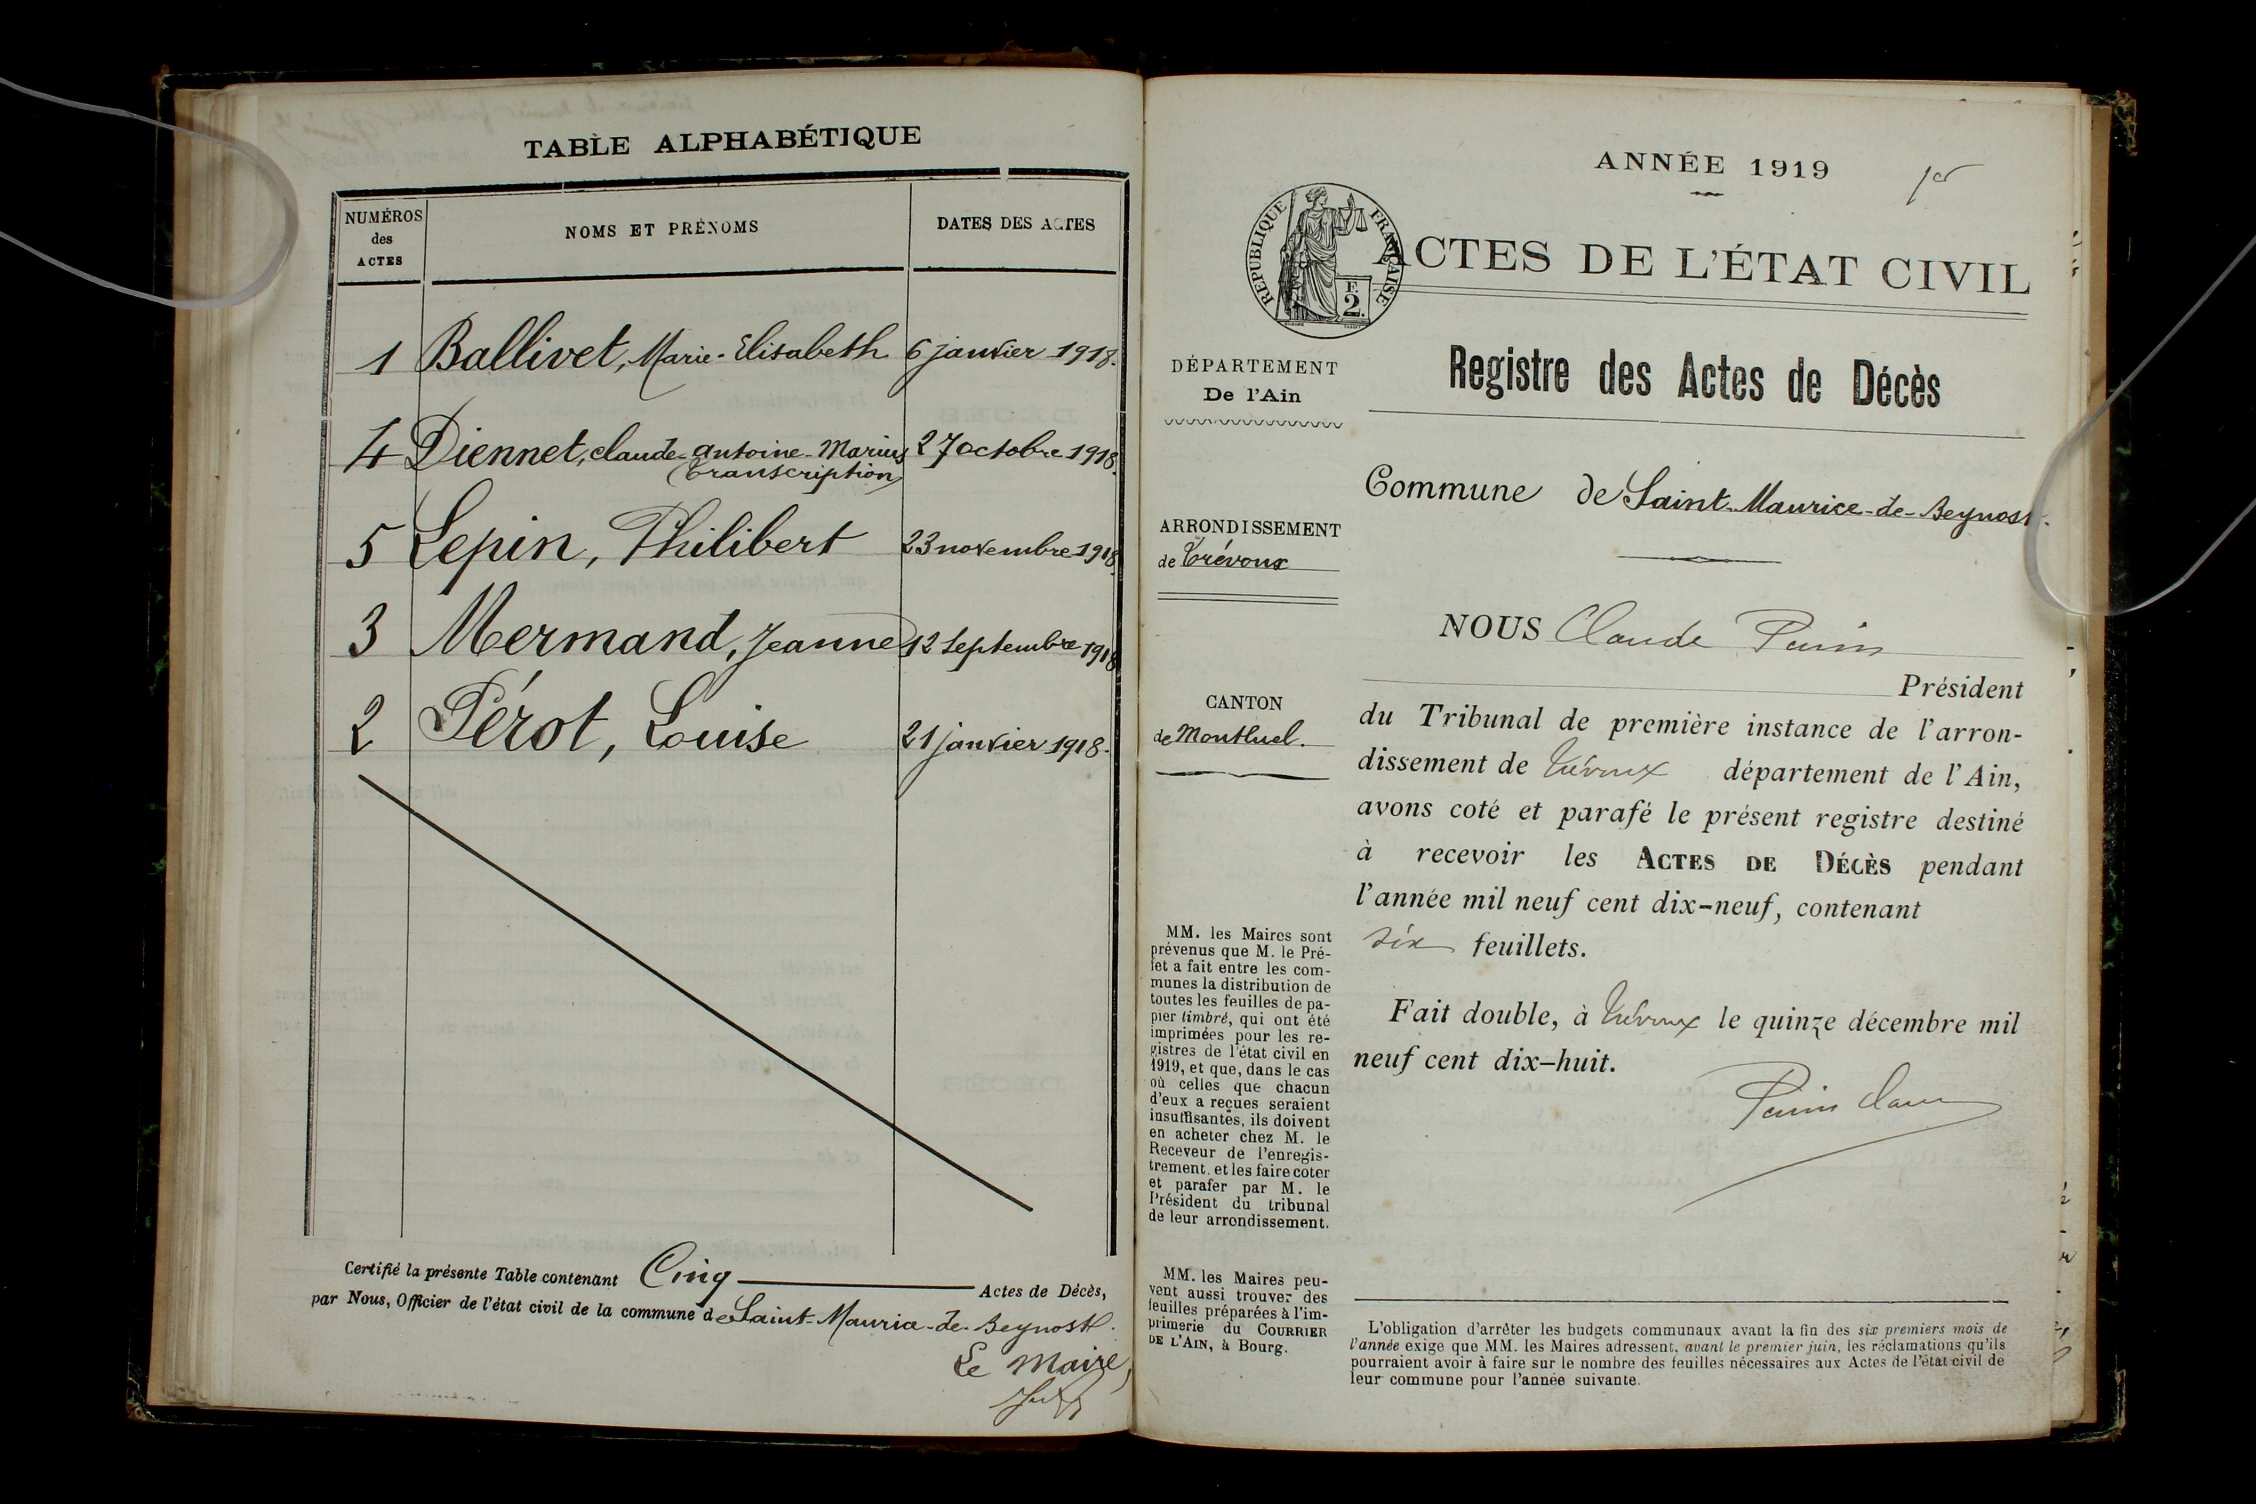 TABLE ALPHABÉTIQUE
NUMÉROS
des
ACTES
NOMS ET PRÉNOMS
DATES DES ACTES
1 Ballivet, Marie-Elisabeth 6 janvier 1918.
4 Diennet, claude-antoine-Marius 27 octobre 1918.
(transcription)
5 Lepin, Philibert 23 novembre 1918
3 Mermand, Jeanne 12 septembre 1918
2 Pérot, Louise 21 janvier 1918.
Certifié la présente Table contenant Cinq Actes de Décès,
par Nous, Officier de l'état civil de la commune de Saint-Maurice-de-Beynost.
Le Maire,
ANNÉE 1919
1er
RÉPUBLIQUE FRANÇAISE
F.
2.
ACTES DE L'ÉTAT CIVIL
Registre des Actes de Décès
DÉPARTEMENT
De l'Ain
ARRONDISSEMENT
de Trévoux
CANTON
de Montluel.
MM. les Maires sont
prévenus que M. le Pré-
fet a fait entre les com-
munes la distribution de
toutes les feuilles de pa-
pier timbré, qui ont été
imprimées pour les re-
gistres de l'état civil en
1919, et que, dans le cas
où celles que chacun
d'eux a reçues seraient
insuffisantes, ils doivent
en acheter chez M. le
Receveur de l'enregis-
trement, et les faire coter
et parafer par M. le
Président du tribunal
de leur arrondissement.
MM. les Maires peu-
vent aussi trouver des
feuilles préparées à l'im-
primerie du COURRIER
DE L'AIN, à Bourg.
Commune de Saint-Maurice-de-Beynost.
NOUS Claude
Président
du Tribunal de première instance de l'arron-
dissement de Trévoux département de l'Ain,
avons coté et parafé le présent registre destiné
à recevoir les ACTES DE DÉCÈS pendant
l'année mil neuf cent dix-neuf, contenant
six feuillets.
Fait double, à Trévoux le quinze décembre mil
neuf cent dix-huit.
L'obligation d'arrêter les budgets communaux avant la fin des six premiers mois de
l'année exige que MM. les Maires adressent, avant le premier juin, les réclamations qu'ils
pourraient avoir à faire sur le nombre des feuilles nécessaires aux Actes de l'état civil de
leur commune pour l'année suivante.